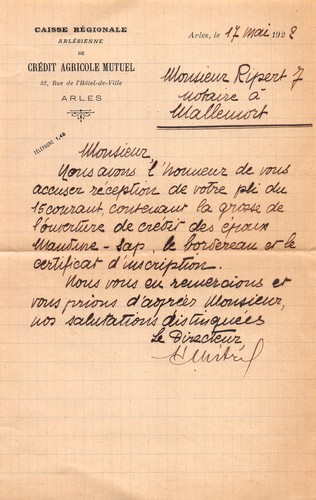 CAISSE RÉGIONALE
ARLÉSIENNE
DE
CRÉDIT AGRICOLE MUTUEL
33, Rue de l'Hôtel-de-Ville
ARLES
TÉLÉPHONE 1.40
Arles, le 17 mai 1922
Monsieur Ripert
notaire à
Mallemort
Monsieur,
Nous avons l'honneur de vous
accuser réception de votre pli du
15 courant, contenant la grosse de
l'ouverture de crédit des époux
Sap, le bordereau et le
certificat d'inscription.
Nous vous en remercions et
vous prions d'agréer Monsieur,
nos salutations distinguées
Le Directeur